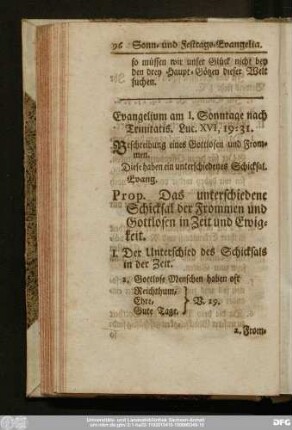 96 Sonn- und Festtags-Evangelia.
so müssen wir unser Glück nicht bey
den drey Haupt-Götzen dieser Welt
suchen.
Evangelium am I. Sonntage nach
Trinitatis. Luc. XVI, 19:31.
Beschreibung eines Gottlosen und From-
men.
Diese haben ein unterschiedenes Schicksal.
Evang.
Prop. Das unterschiedene
Schicksal der Frommen und
Gottlosen in Zeit und Ewig-
keit.
I. Der Unterschied des Schicksals
in der Zeit.
1. Gottlose Menschen haben oft
Reichthum,
Ehre, } V. 19.
Gute Tage.
2. From-
Universitäts- und Landesbibliothek Sachsen-Anhalt
DFG